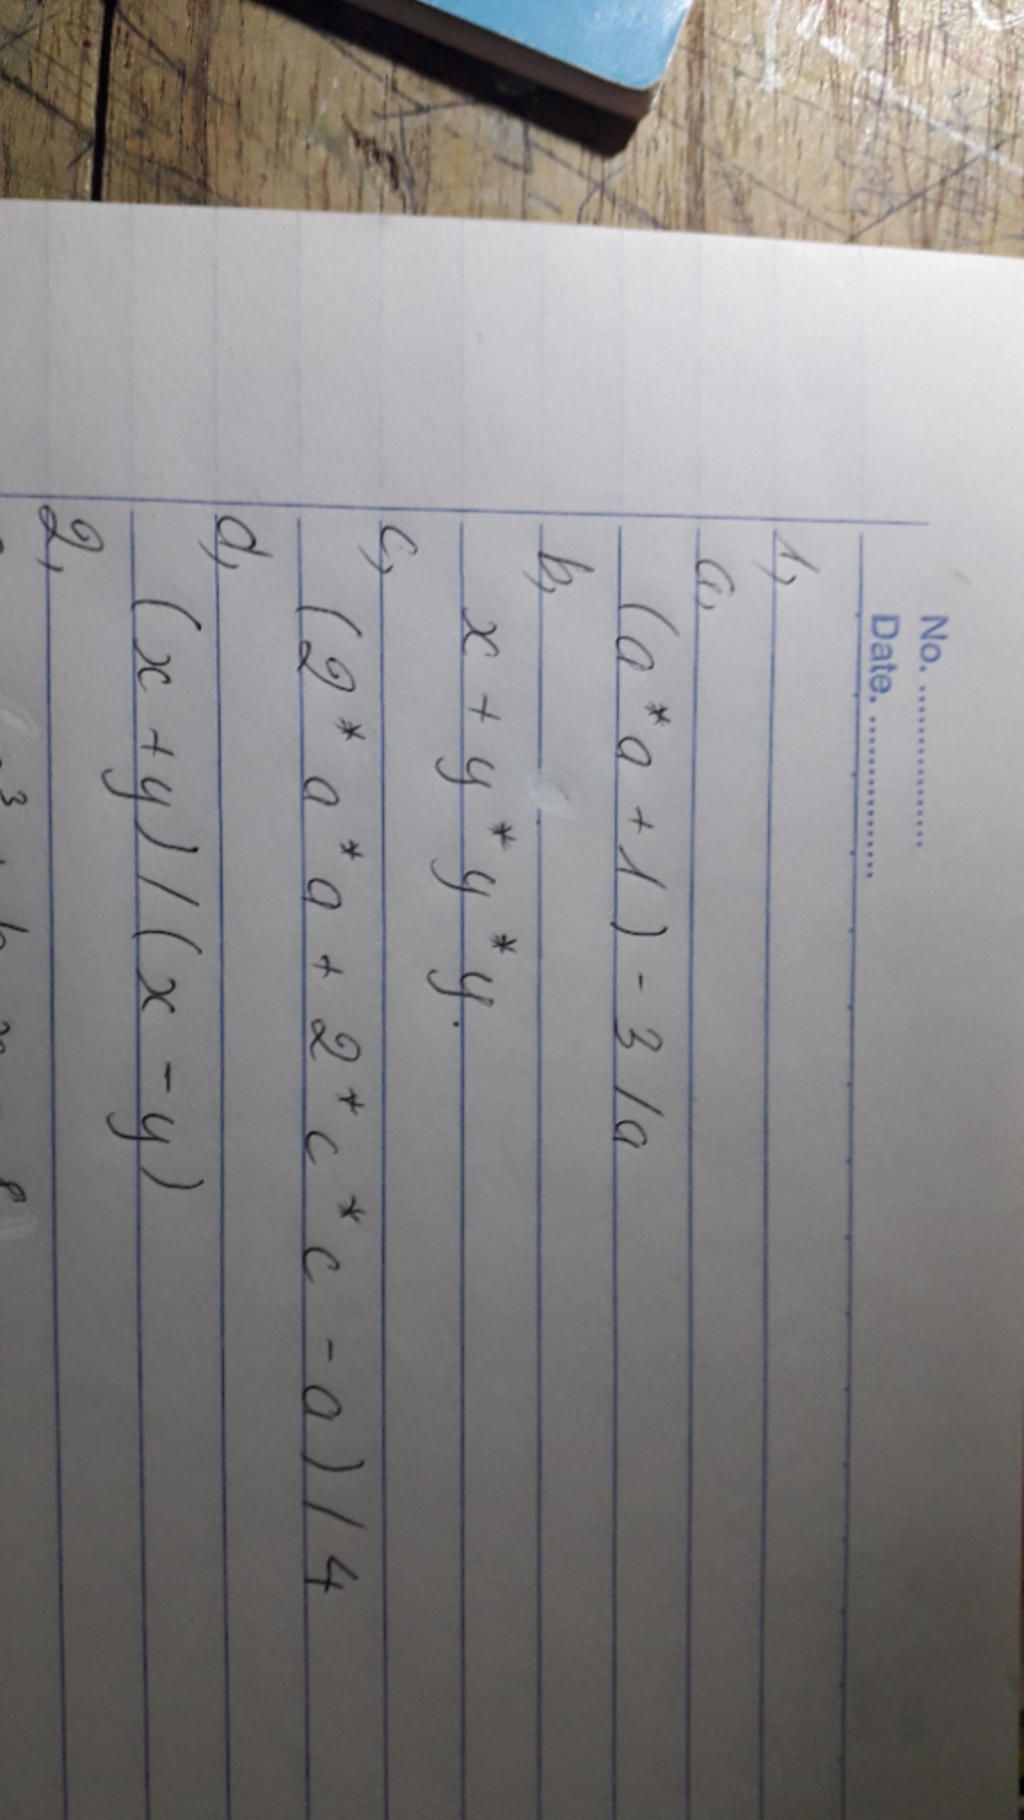 No. ................
Date. ................
1,
a,
(a*a+1)-3/a
b,
x+y*y*y.
c,
(2*a*a+2*c*c-a)/4
d,
(x+y)/(x-y)
2,